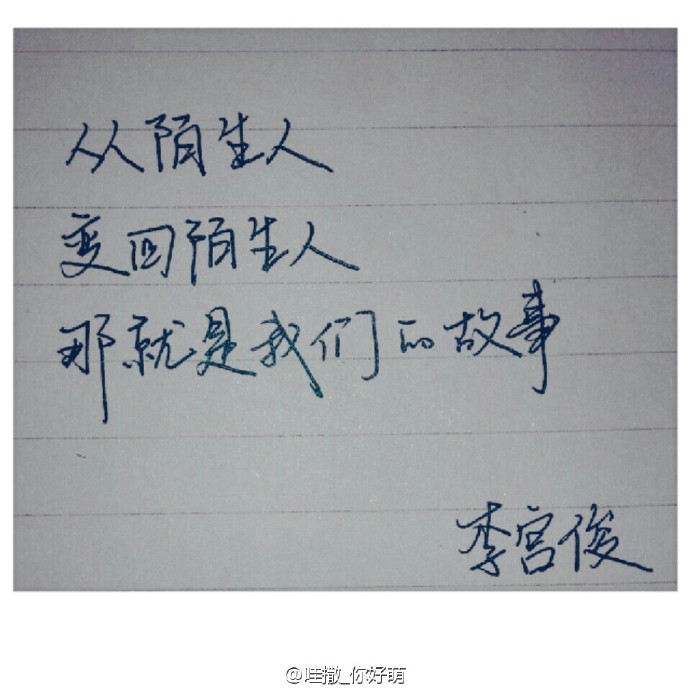 从陌生人
变回陌生人
那就是我们的故事
李宫俊
@哇撒_你好萌